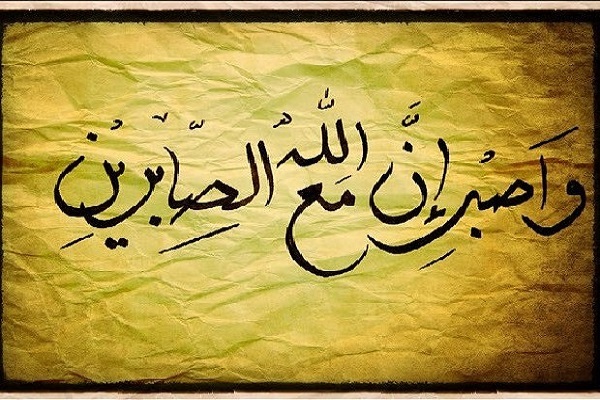 وَاصْبِر إِنَّ اللّٰهُ مَعَ الصَّابِرِيْنَ